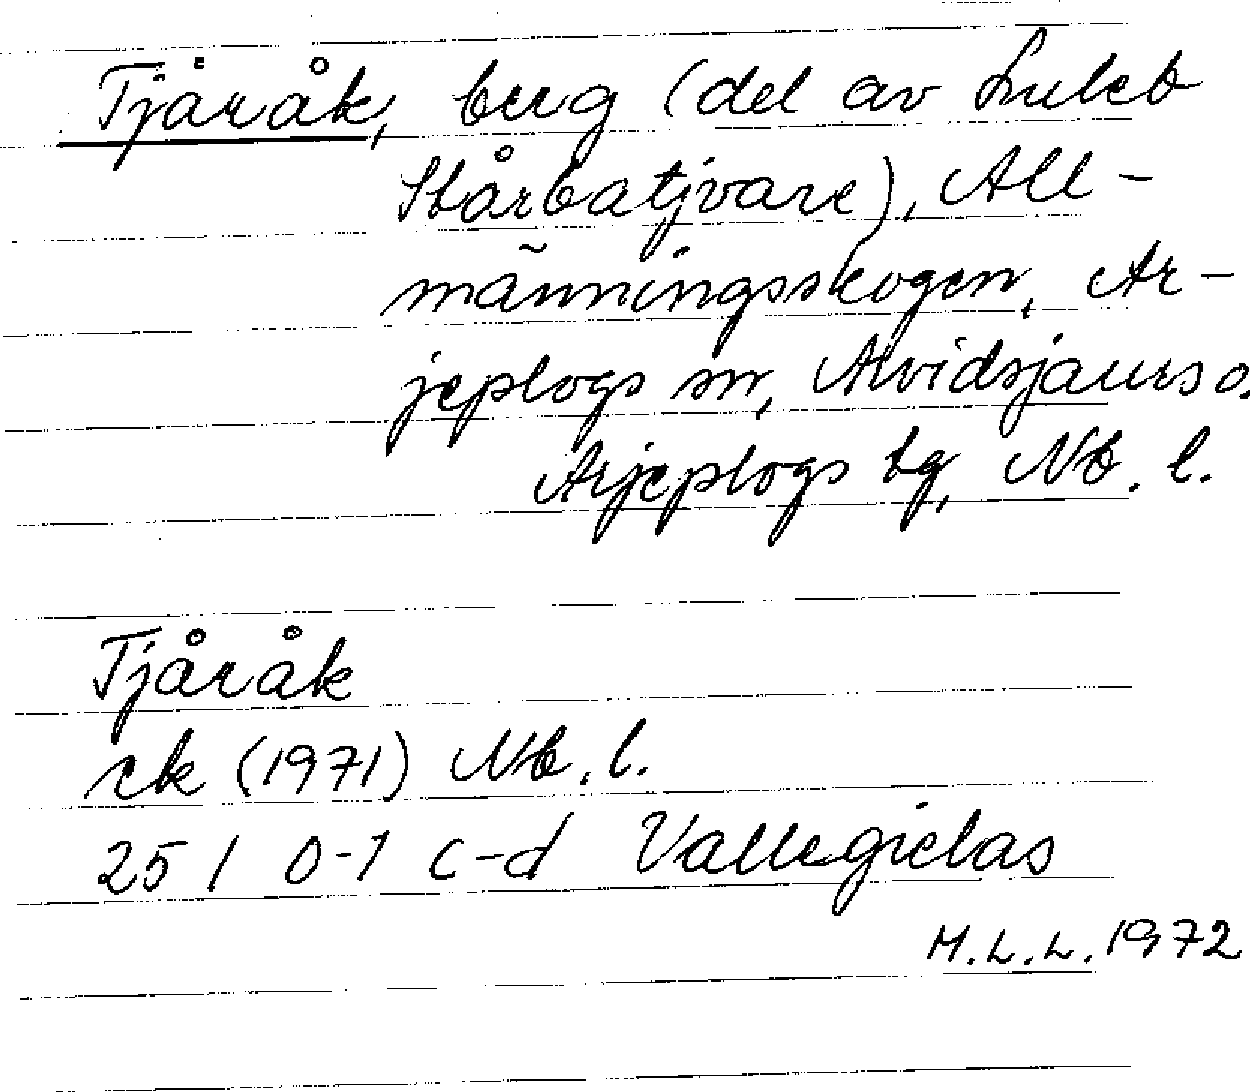 Tjåråk, berg (del av Luleb
Stårbatjvare), All-
männingsskogen, Ar-
jeplogs sn, Arvidsjaurs o.
Arjeplogs tg, Nb. l.
Tjåråk
ek (1971) Nb. l.
25 I 0-1 c-d Vallegielas
M.L.L. 1972